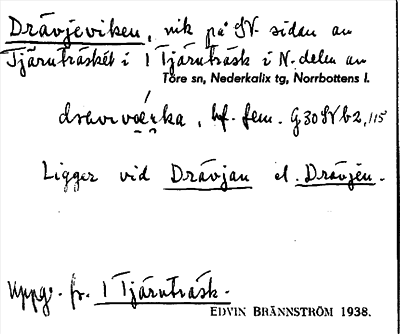 Drävjeviken, vik på SV. sidan av
Tjärnträsket i 1 Tjärnträsk i N-delen av
Töre sn, Nederkalix tg, Norrbottens l.
bf. fem. G 30 SV b 2, 115
Ligger vid Drävjan el. Drävjen.
Uppg. fr. 1 Tjärnträsk.
EDVIN BRÄNNSTRÖM 1938.